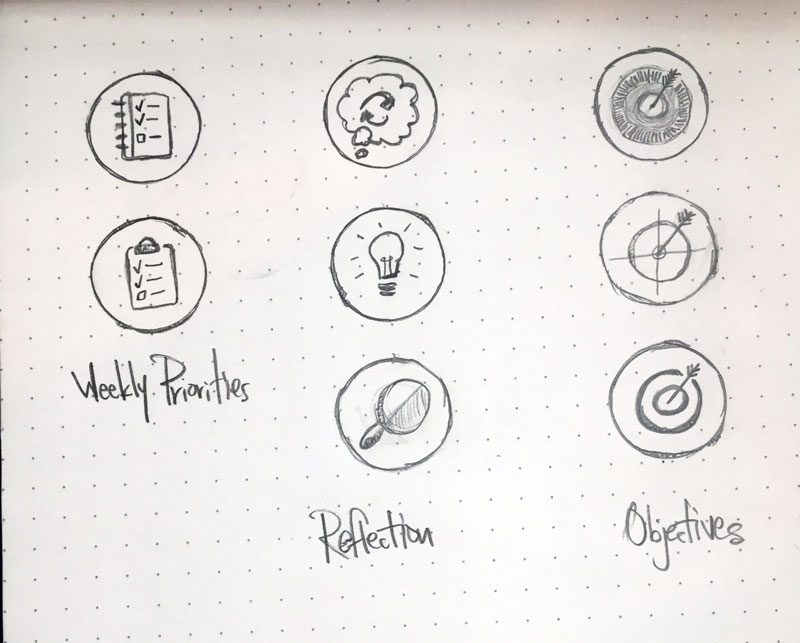 Weekly Priorities
Reflection
Objectives